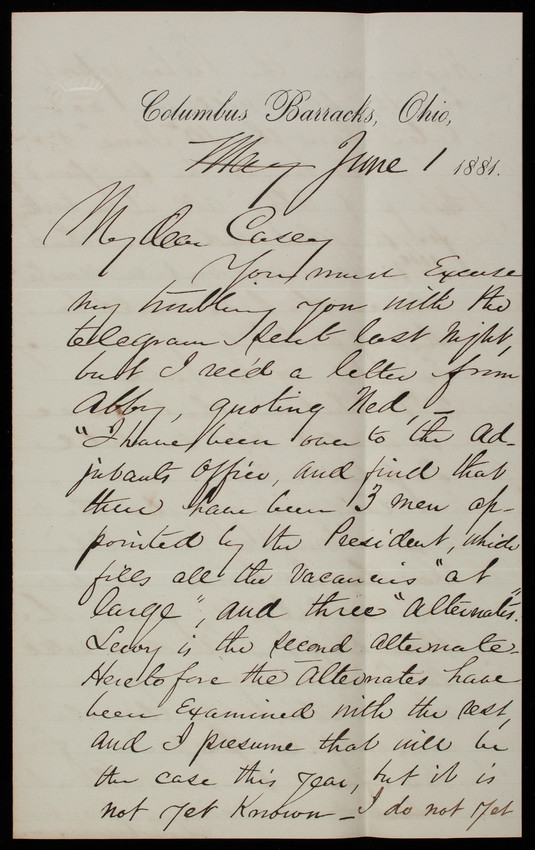 Columbus Barracks, Ohio,
May June 1 1881.
My Dear Casey
You must Excuse
my troubling you with the
telegram I sent last night,
but I rec'd a letter from
Abby, quoting Ned, —
"I have been over to the Ad-
jutants Office, and find that
there have been 3 men ap-
pointed by the President, which
fills all the vacancies "at
large", and three "Alternates".
Leroy is the second alternate.
Heretofore the Alternates have
been Examined with the rest,
and I presume that will be
the case this year, but it is
not yet Known — I do not yet